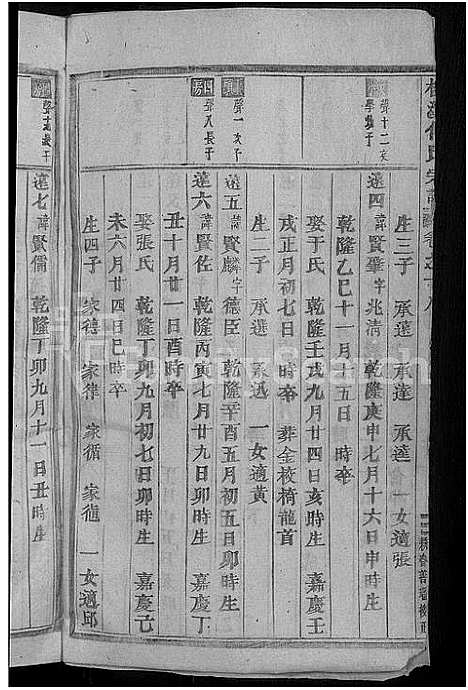 生三子 承遠 承達 一女適張
聲十二次
遠四 諱賢肇字兆清 乾隆庚申七月十六日申時生
乾隆乙巳十一月十五日 時卒
娶于氏 乾隆壬戌九月廿四日亥時生 嘉慶壬
戌正月初七日 時卒 葬金校椅龍首
生二子 承選 承迅 一女適黃
聲一次子
遠五 諱賢麟字德臣 乾隆辛酉五月初五日卯時生
四房
聲八長子
遠六 諱賢佐 乾隆丙寅七月廿九日卯時生 嘉慶丁
丑十月廿一日酉時卒
娶張氏 乾隆丁卯九月初七日卯時生 嘉慶己
未六月廿四日巳時卒
生四子 家德 家律 家循 家徳 一女適邱
遠七 諱賢儒 乾隆丁卯九月十一日丑時生